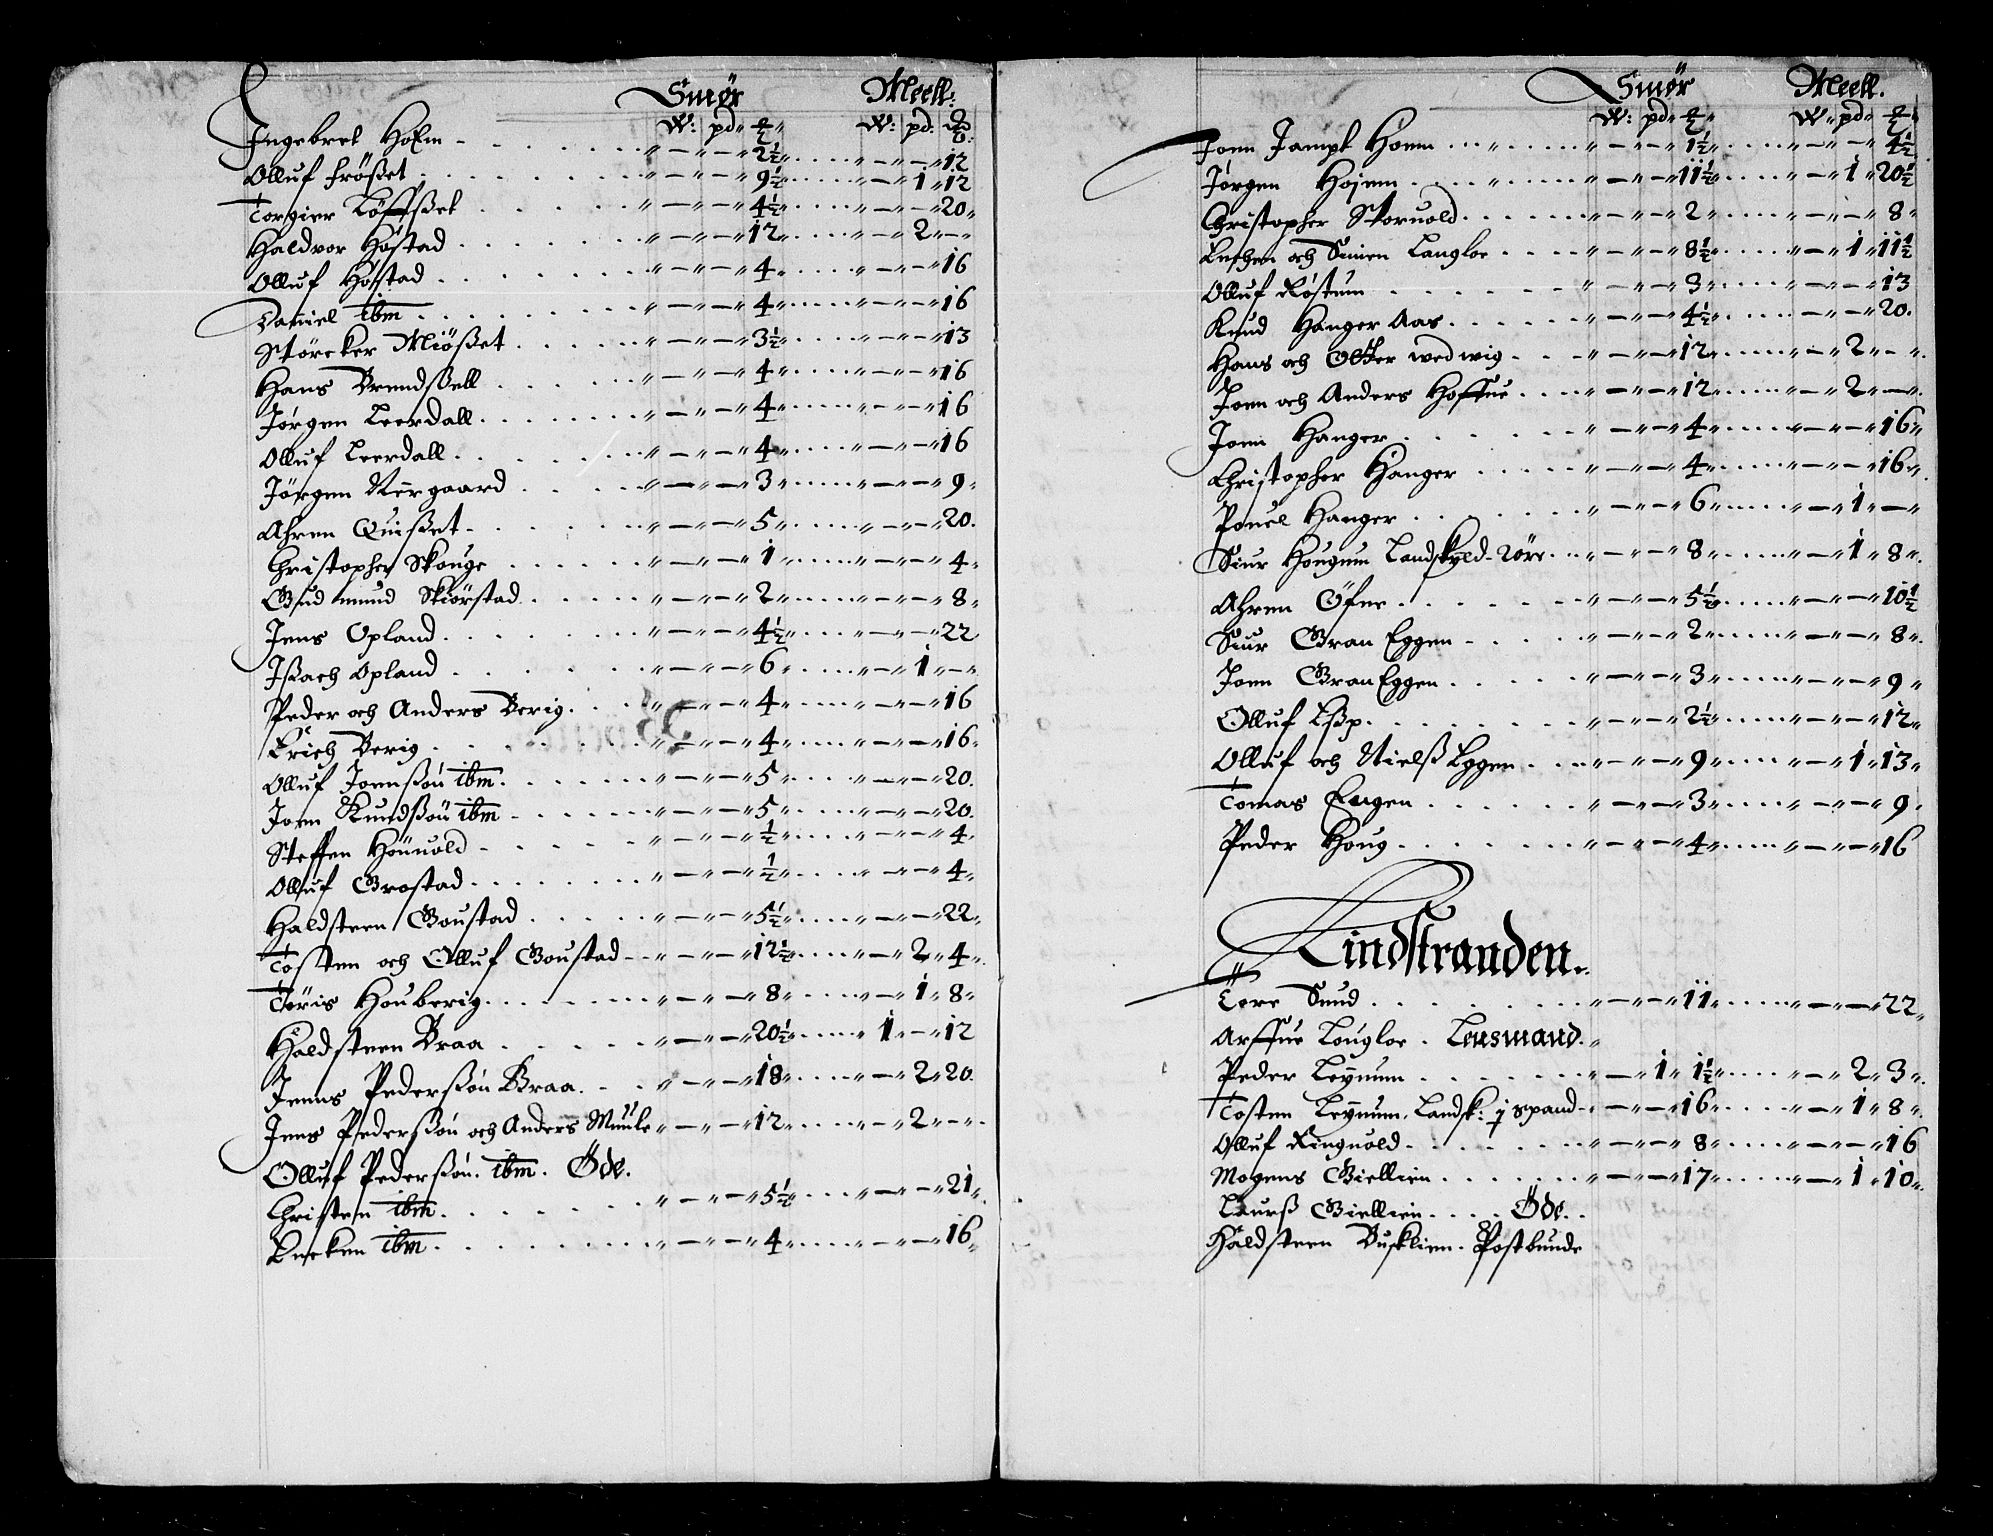 Smør Meell:
W: pd: ℔ W: pd: ℔
Ingebret Holm - - - 2½ - - 12
Olluf Frösset - - 9½ - 1 12
Torgier Löffsset - - 4½ - - 20
Haldvor Höstad - - 12 - 2 -
Olluf Höstad - - 4 - - 16
Daniel ibm - - 4 - - 16
Störcker Miösset - - 3½ - - 13
Hans Brendssell - - 4 - - 16
Jørgen Leerdall - - 4 - - 16
Olluf Leerdall - - 4 - - 16
Jørgen Nergaard - - 3 - - 9
Ahren Quisset - - 5 - - 20
Christopher Skouge - - 1 - - 4
Gudmund Skiörstad - - 2 - - 8
Jens Opland - - 4½ - - 22
Issach Opland - - 6 - 1 -
Peder och Anders Berig - - 4 - - 16
Erich Berig - - 4 - - 16
Olluf Joenssön ibm - - 5 - - 20
Joen Knudssön ibm - - 5 - - 20
Steffen Hönuold - - ½ - - 4
Olluf Grostad - - ½ - - 4
Haldsteen Goustad - - 5½ - - 22
Tosten och Olluf Goustad - - 12½ - 2 4
Töris Houberig - - 8 - 1 8
Haldsteen Braa - - 20½ 1 - 12
Jenns Pederssön Braa - - 18 - 2 20
Jens Pederssön och Anders Muule - - 12 - 2 -
Olluf Pederssön ibm. Öde.
Christen ibm - - 5½ - - 21
Encken ibm - - 4 - - 16
Smør Meell.
W: pd: ℔ W: pd: ℔
Joen Jampt Hoem - - 1½ - - 4½
Jørgen Hojem - - 11½ - 1 20½
Christopher Storuold - - 2 - - 8
Enchen och Simen Langloe - - 8½ - 1 11½
Olluf Röstum - - 3 - - 13
Knud Hanger Aas - - 4½ - - 20
Hans och Otter wed wig - - 12 - 2 -
Joen och Anders Hoffue - - 12 - 2 -
Joen Hanger - - 4 - - 16
Christopher Hanger - - 4 - - 16
Pouel Hanger - - 6 - 1 -
Siur Hougum Landskyld 2 öre - - 8 - 1 8
Ahren Öfne - - 5½ - - 10½
Siur Gran Eggen - - 2 - - 8
Joen Gran Eggen - - 3 - - 9
Olluf Essp - - 2½ - - 12
Olluf och Nielss Eggen - - 9 - 1 13
Tomas Engen - - 3 - - 9
Peder Houg - - 4 - - 16
Lindstranden.
Tore Sund - - 11 - - 22
Arffue Lougloe. Lensmand.
Peder Leÿnum - 1 1½ - 2 3
Tosten Leÿnum. Landsk: j spand - - 16 - 1 8
Olluf Ringuold - - 8 - - 16
Mogens Giellien - - 17 - 1 10
Laurss Giellien Öde.
Haldsteen Busklien. Postbunde